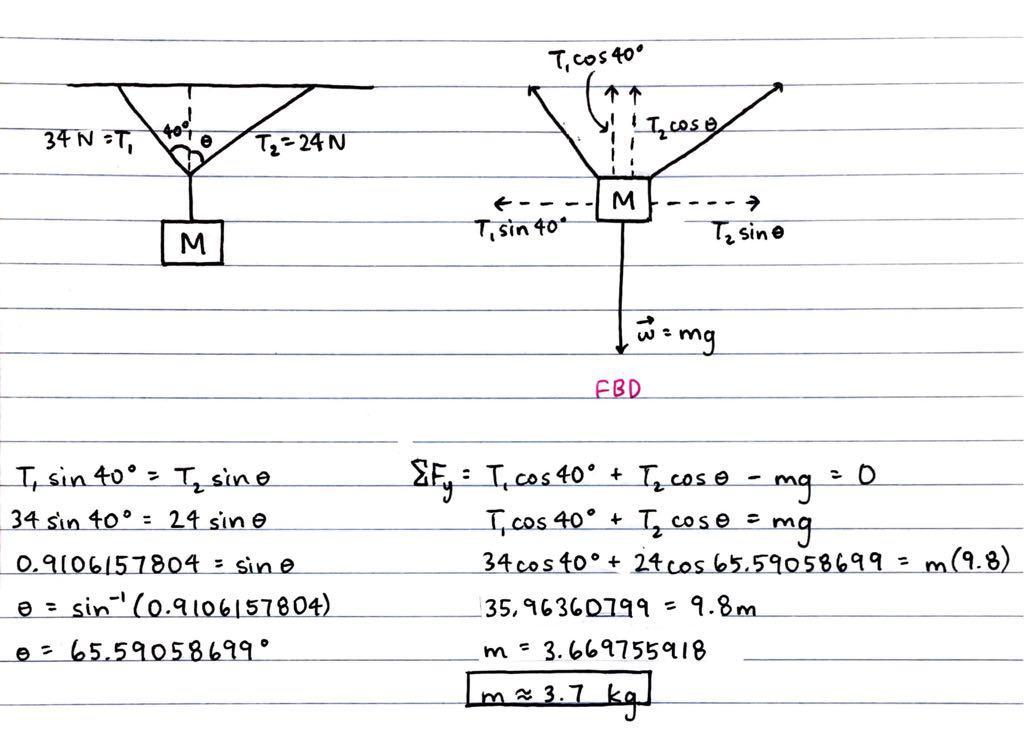 T₁cos40°
34N = T₁
40°
θ
T₂ = 24N
T₂cosθ
M
M
T₁sin40°
T₂sinθ
w⃗ = mg
FBD
T₁ sin 40° = T₂ sinθ
34 sin 40° = 24 sinθ
0.9106157804 = sinθ
θ = sin⁻¹(0.9106157804)
θ = 65.59058699°
ΣFy = T₁cos40° + T₂cosθ - mg = 0
T₁cos40° + T₂cosθ = mg
34cos40° + 24cos65.59058699 = m(9.8)
35.96360799 = 9.8m
m = 3.669755918
m ≈ 3.7 kg